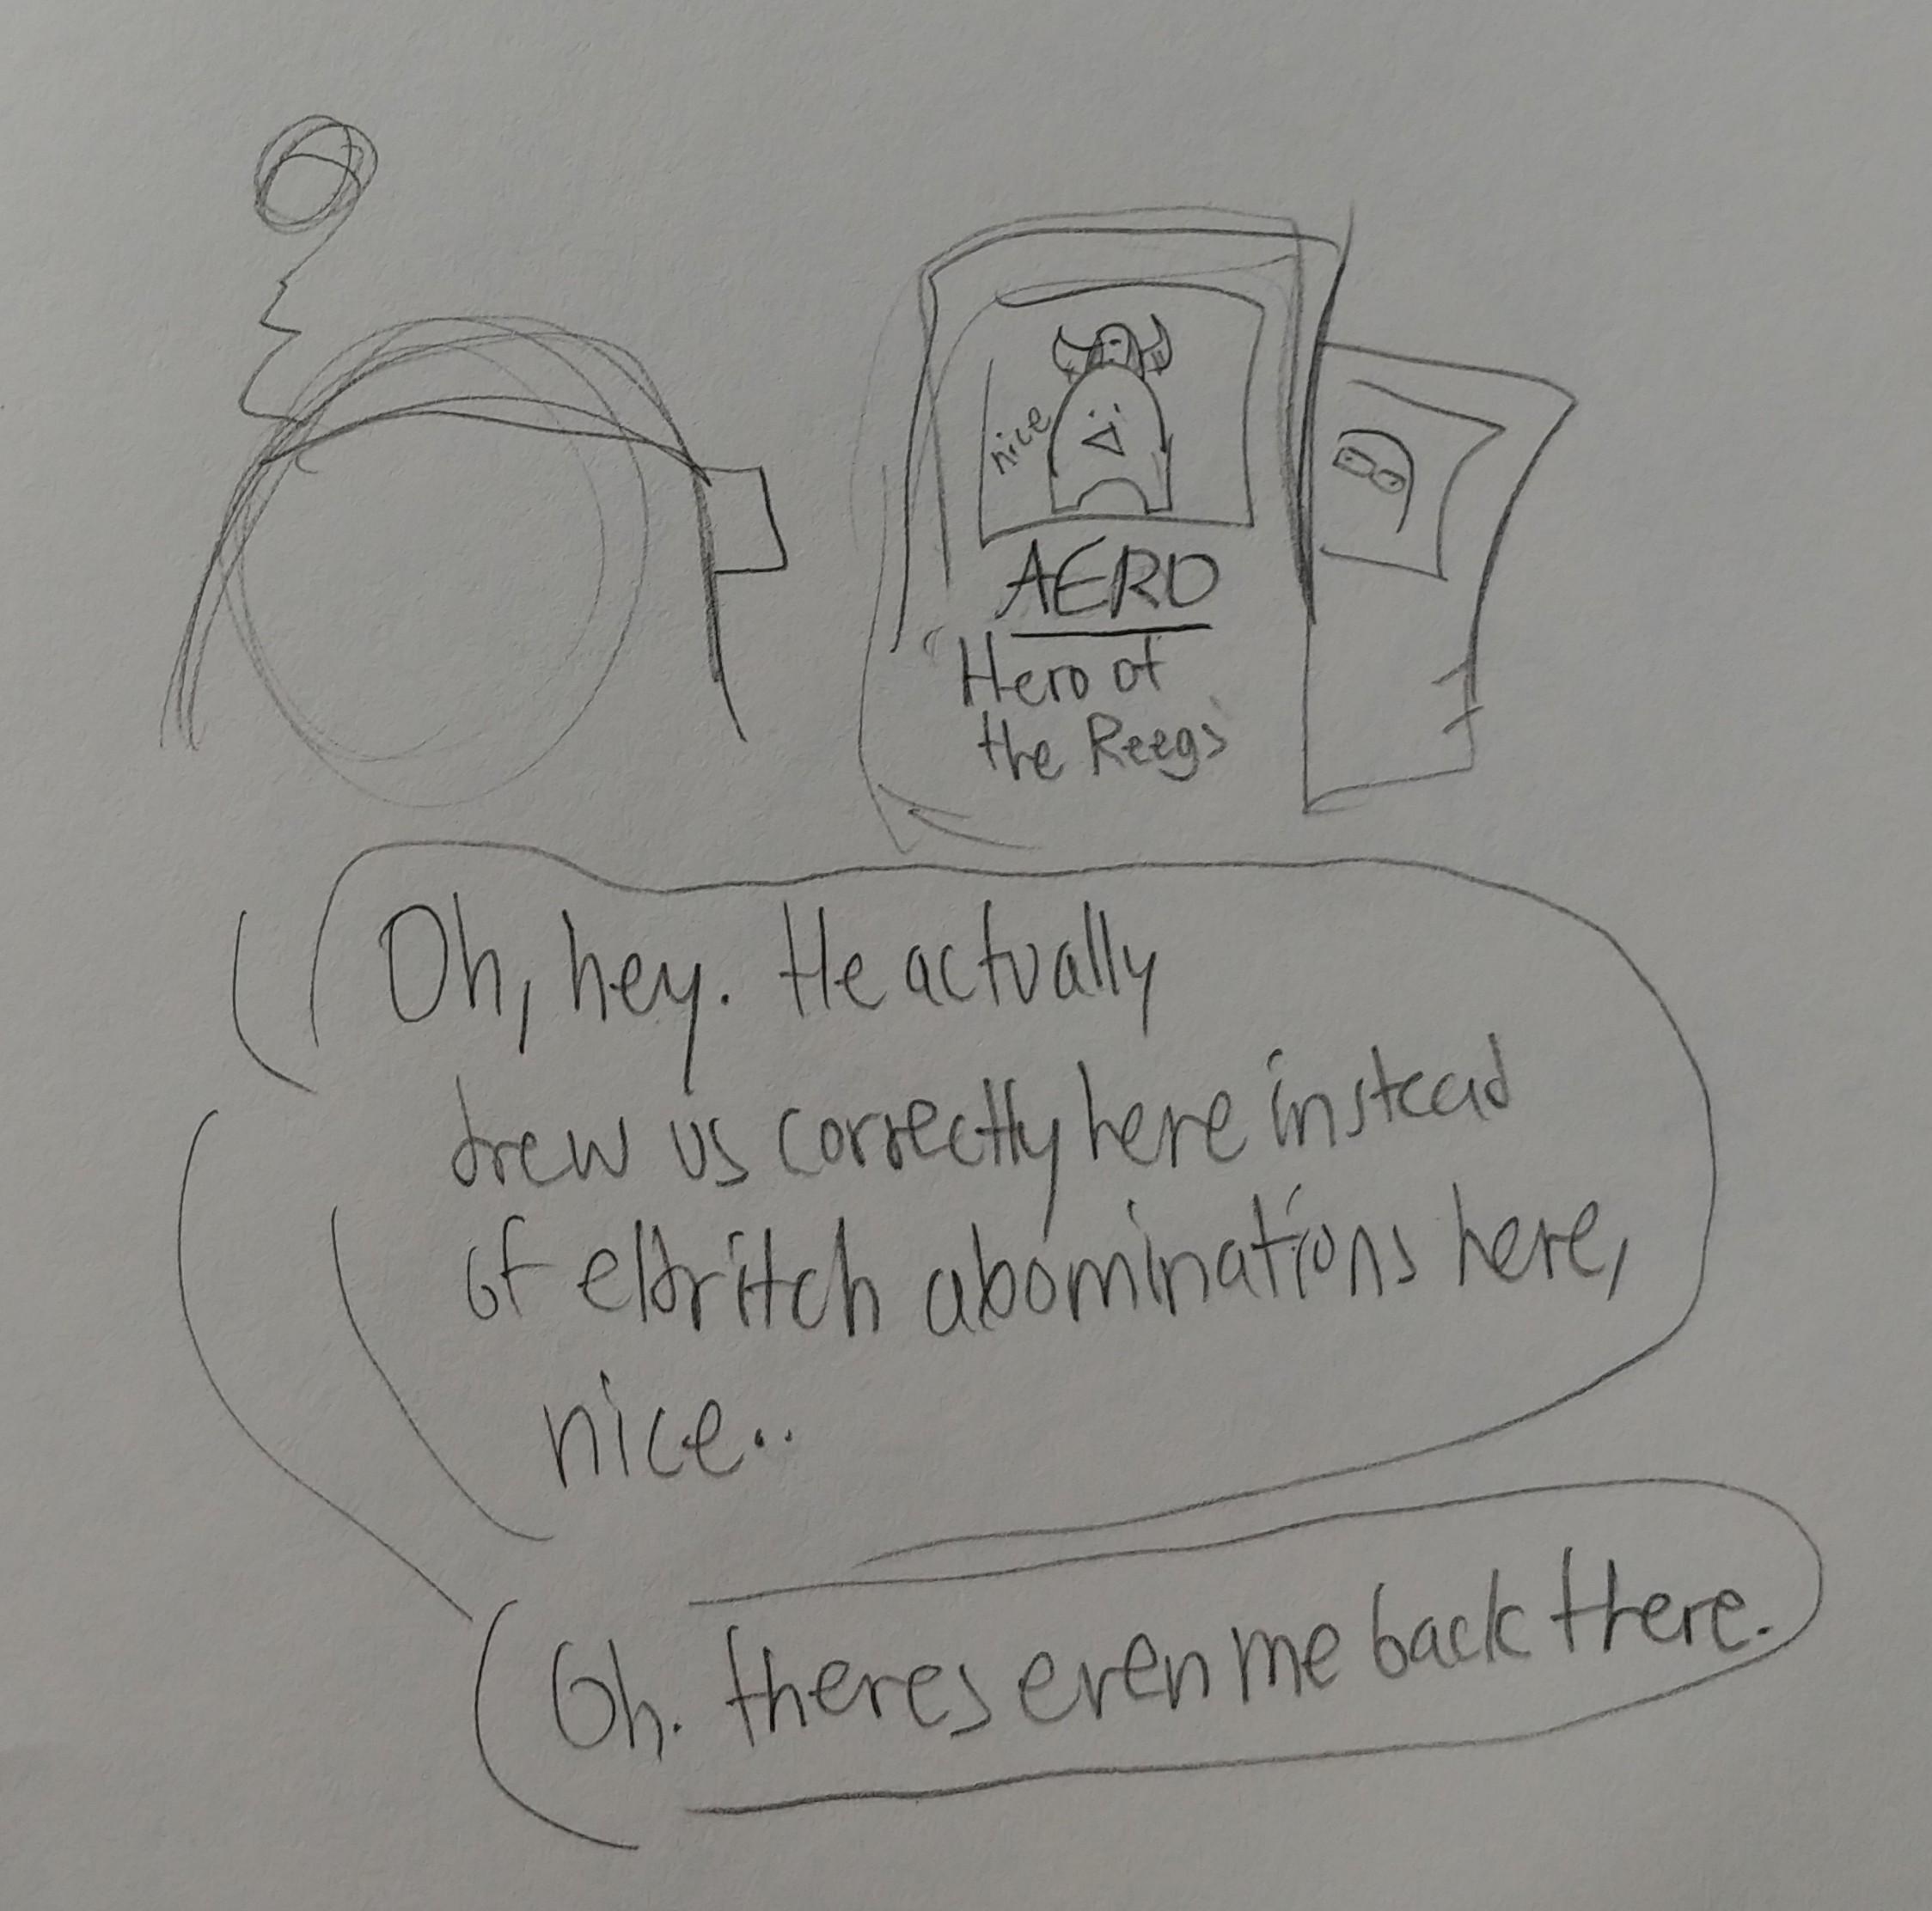 nice
AERO
Hero of
the Reegs
Oh, hey. He actually
drew us correctly here instead
of eldritch abominations here,
nice..
Oh. theres even me back there.